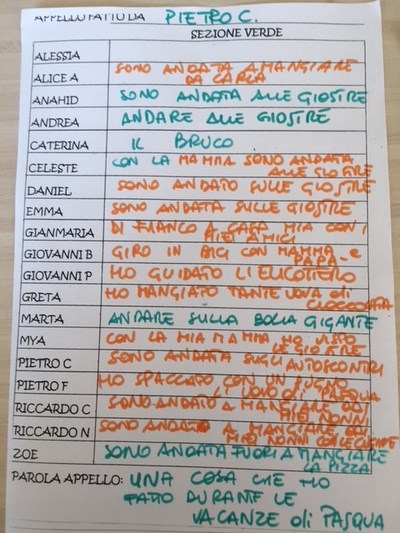 APPELLO FATTO DA PIETRO C.
SEZIONE VERDE
ALESSIA
ALICE A SONO ANDATA A MANGIARE
DA CARLA
ANAHID SONO ANDATA ALLE GIOSTRE
ANDREA ANDARE ALLE GIOSTRE
CATERINA IL BRUCO
CELESTE CON LA MAMMA SONO ANDATA
ALLE GIOSTRE
DANIEL SONO ANDATO SULLE GIOSTRE
EMMA SONO ANDATA SULLE GIOSTRE
GIANMARIA DI FIANCO A CASA MIA CON I
MIEI AMICI
GIOVANNI B GIRO IN BICI CON MAMMA e
PAPA'
GIOVANNI P HO GUIDATO L'ELICOTTERO
GRETA HO MANGIATO TANTE UOVA di
CIOCCOLATA
MARTA ANDARE SULLA BOLLA GIGANTE
MYA CON LA MIA MAMMA HO VISTO
LE GIOSTRE
PIETRO C SONO ANDATO SUGLI AUTOSCONTRI
PIETRO F HO SPACCATO CON UN PUGNO
L'UOVO DI PASQUA
RICCARDO C SONO ANDATO A MANGIARE DAI
MIEI NONNI
RICCARDO N SONO ANDATO A MANGIARE DAI
MIEI NONNI CON LE CUGINE
ZOE SONO ANDATA FUORI A MANGIARE
LA PIZZA
PAROLA APPELLO: UNA COSA CHE HO
FATTO DURANTE LE
VACANZE di PASQUA